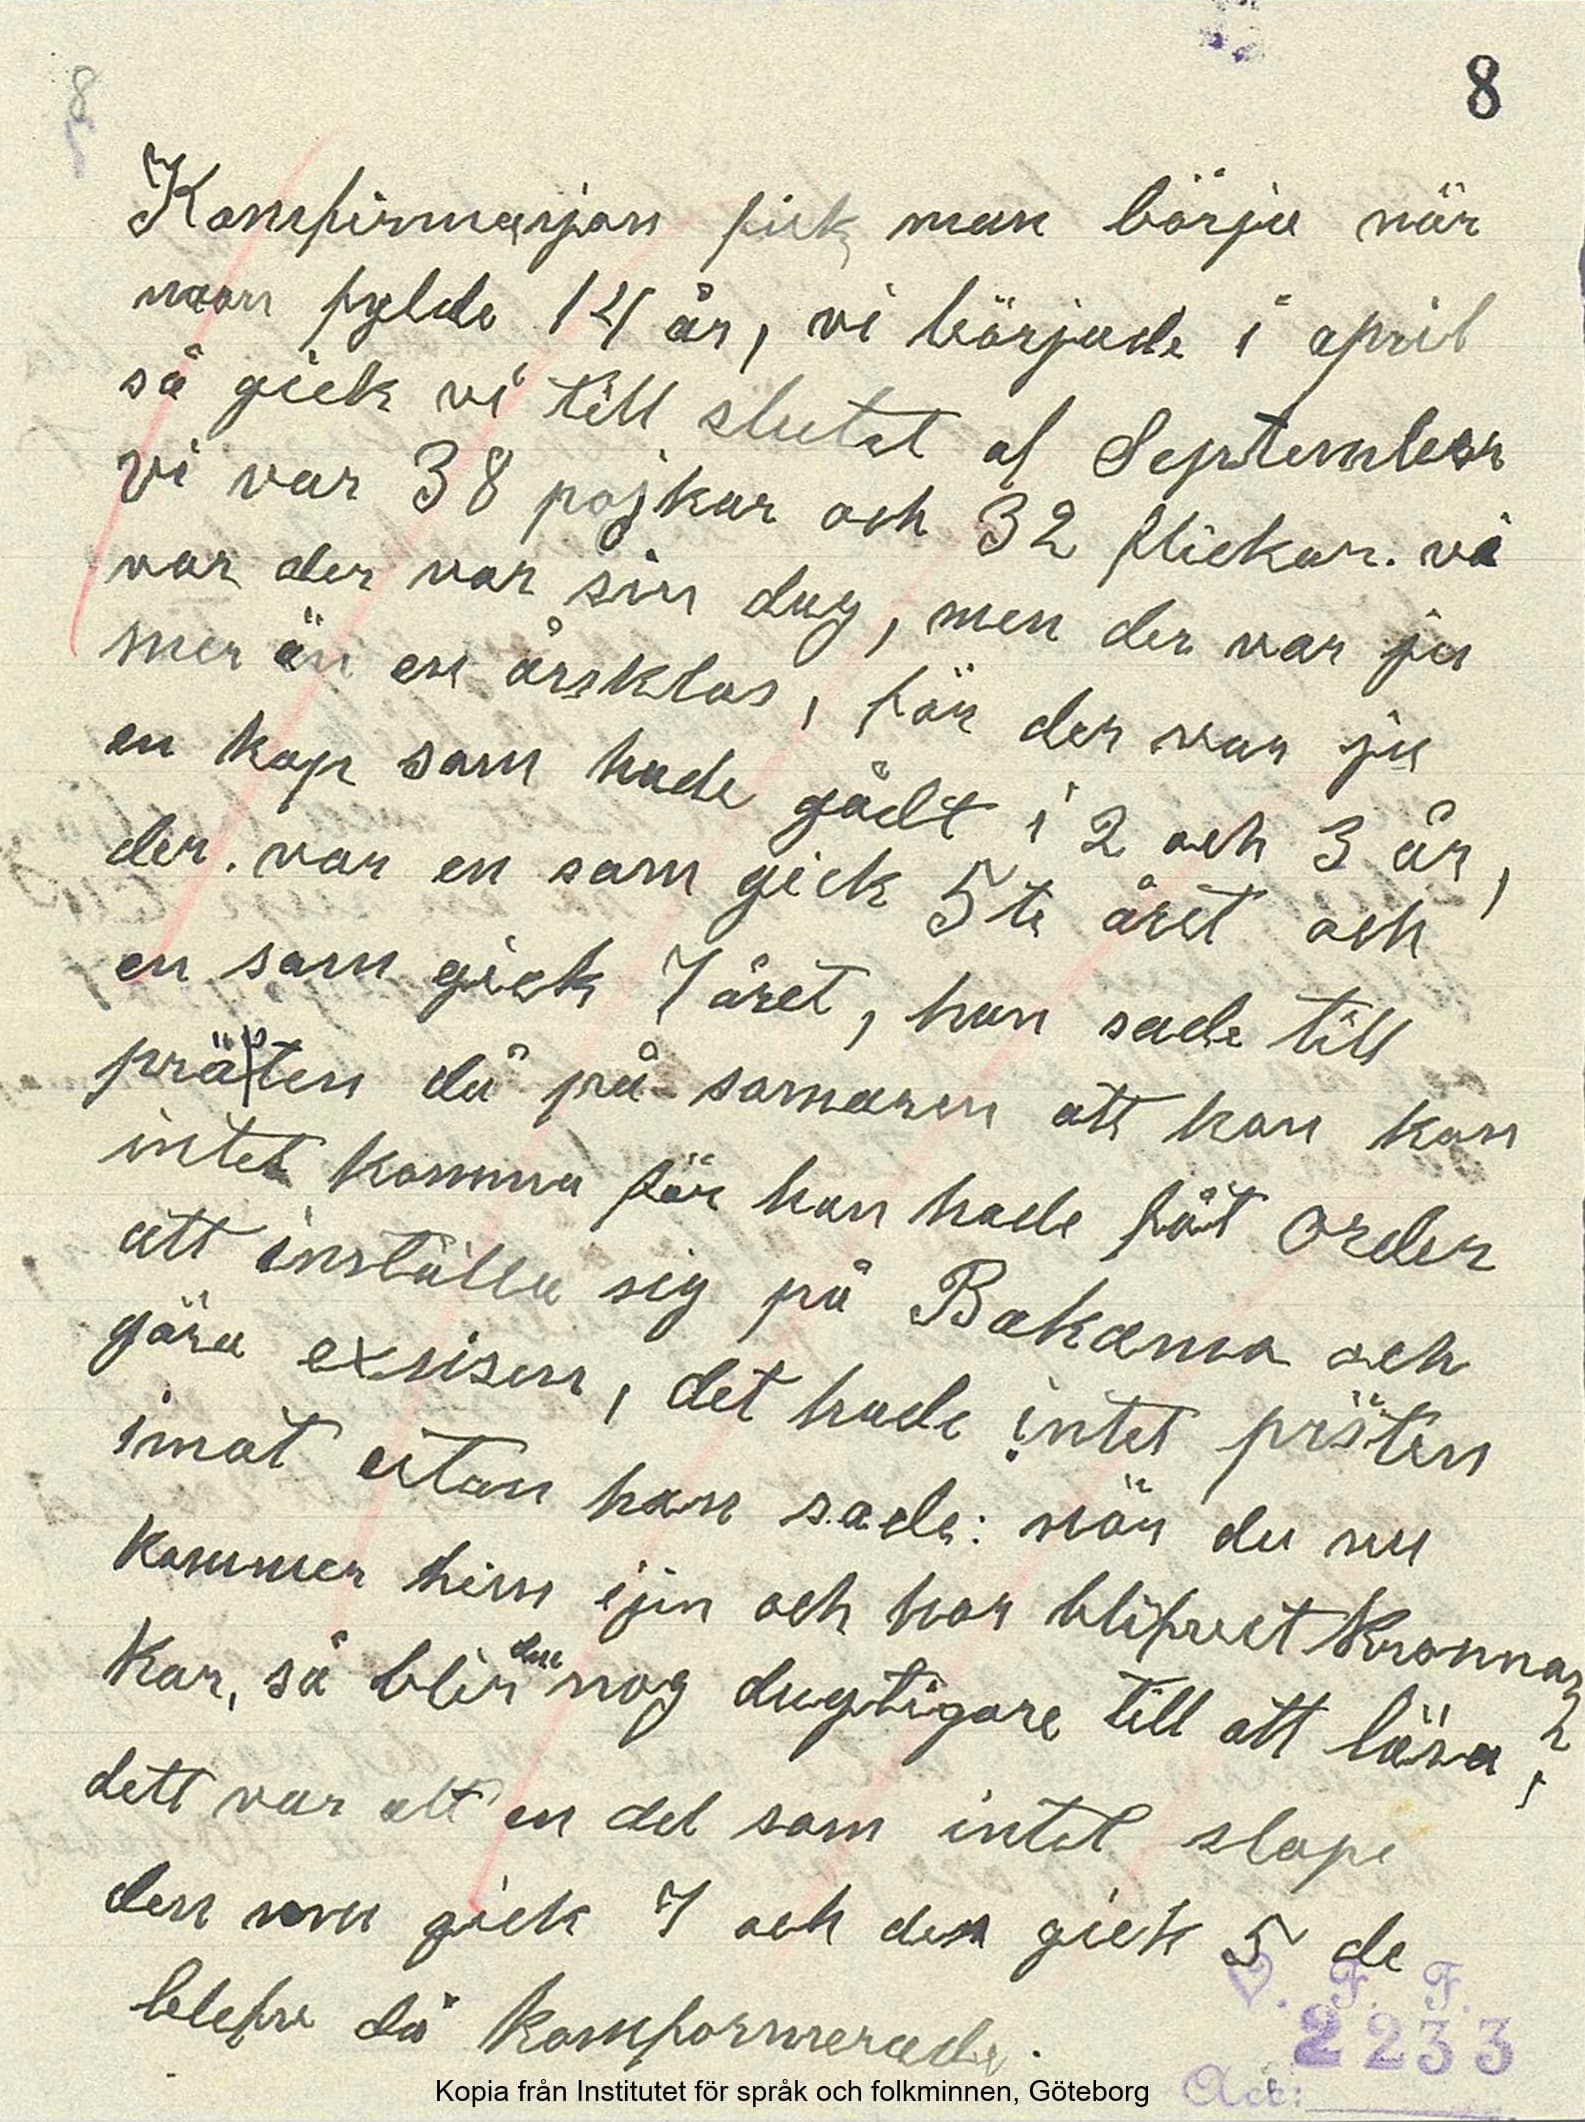 8
Komfirmasjon fick man börja när
man fylde 14 år, vi började i april
så gick vi till slutet af September
vi var 38 pojkar och 32 flickar. vi
var der var sin dag, men der var ju
mer än en årsklas, för der var ju
en hop som hade gådt i 2 och 3 år,
der. var en som gick 5te året och
en som gick 7 året, han sade till
prästen då på somaren att han kan
intet komma för han hade fåt order
att inställa sig på Bakamo och
göra exsisen, det hade intet prästen
imot utan han sade: när du nu
kommer him ijen och har blifvet Kronnans
Kar, så blir du nog dugtigare till att läsa,
dett var alt en del som intet slape
den gick 7 och den gick 5 de
blefve då komformerade.
V. F. F.
2233
Acc:
Kopia från Institutet för språk och folkminnen, Göteborg